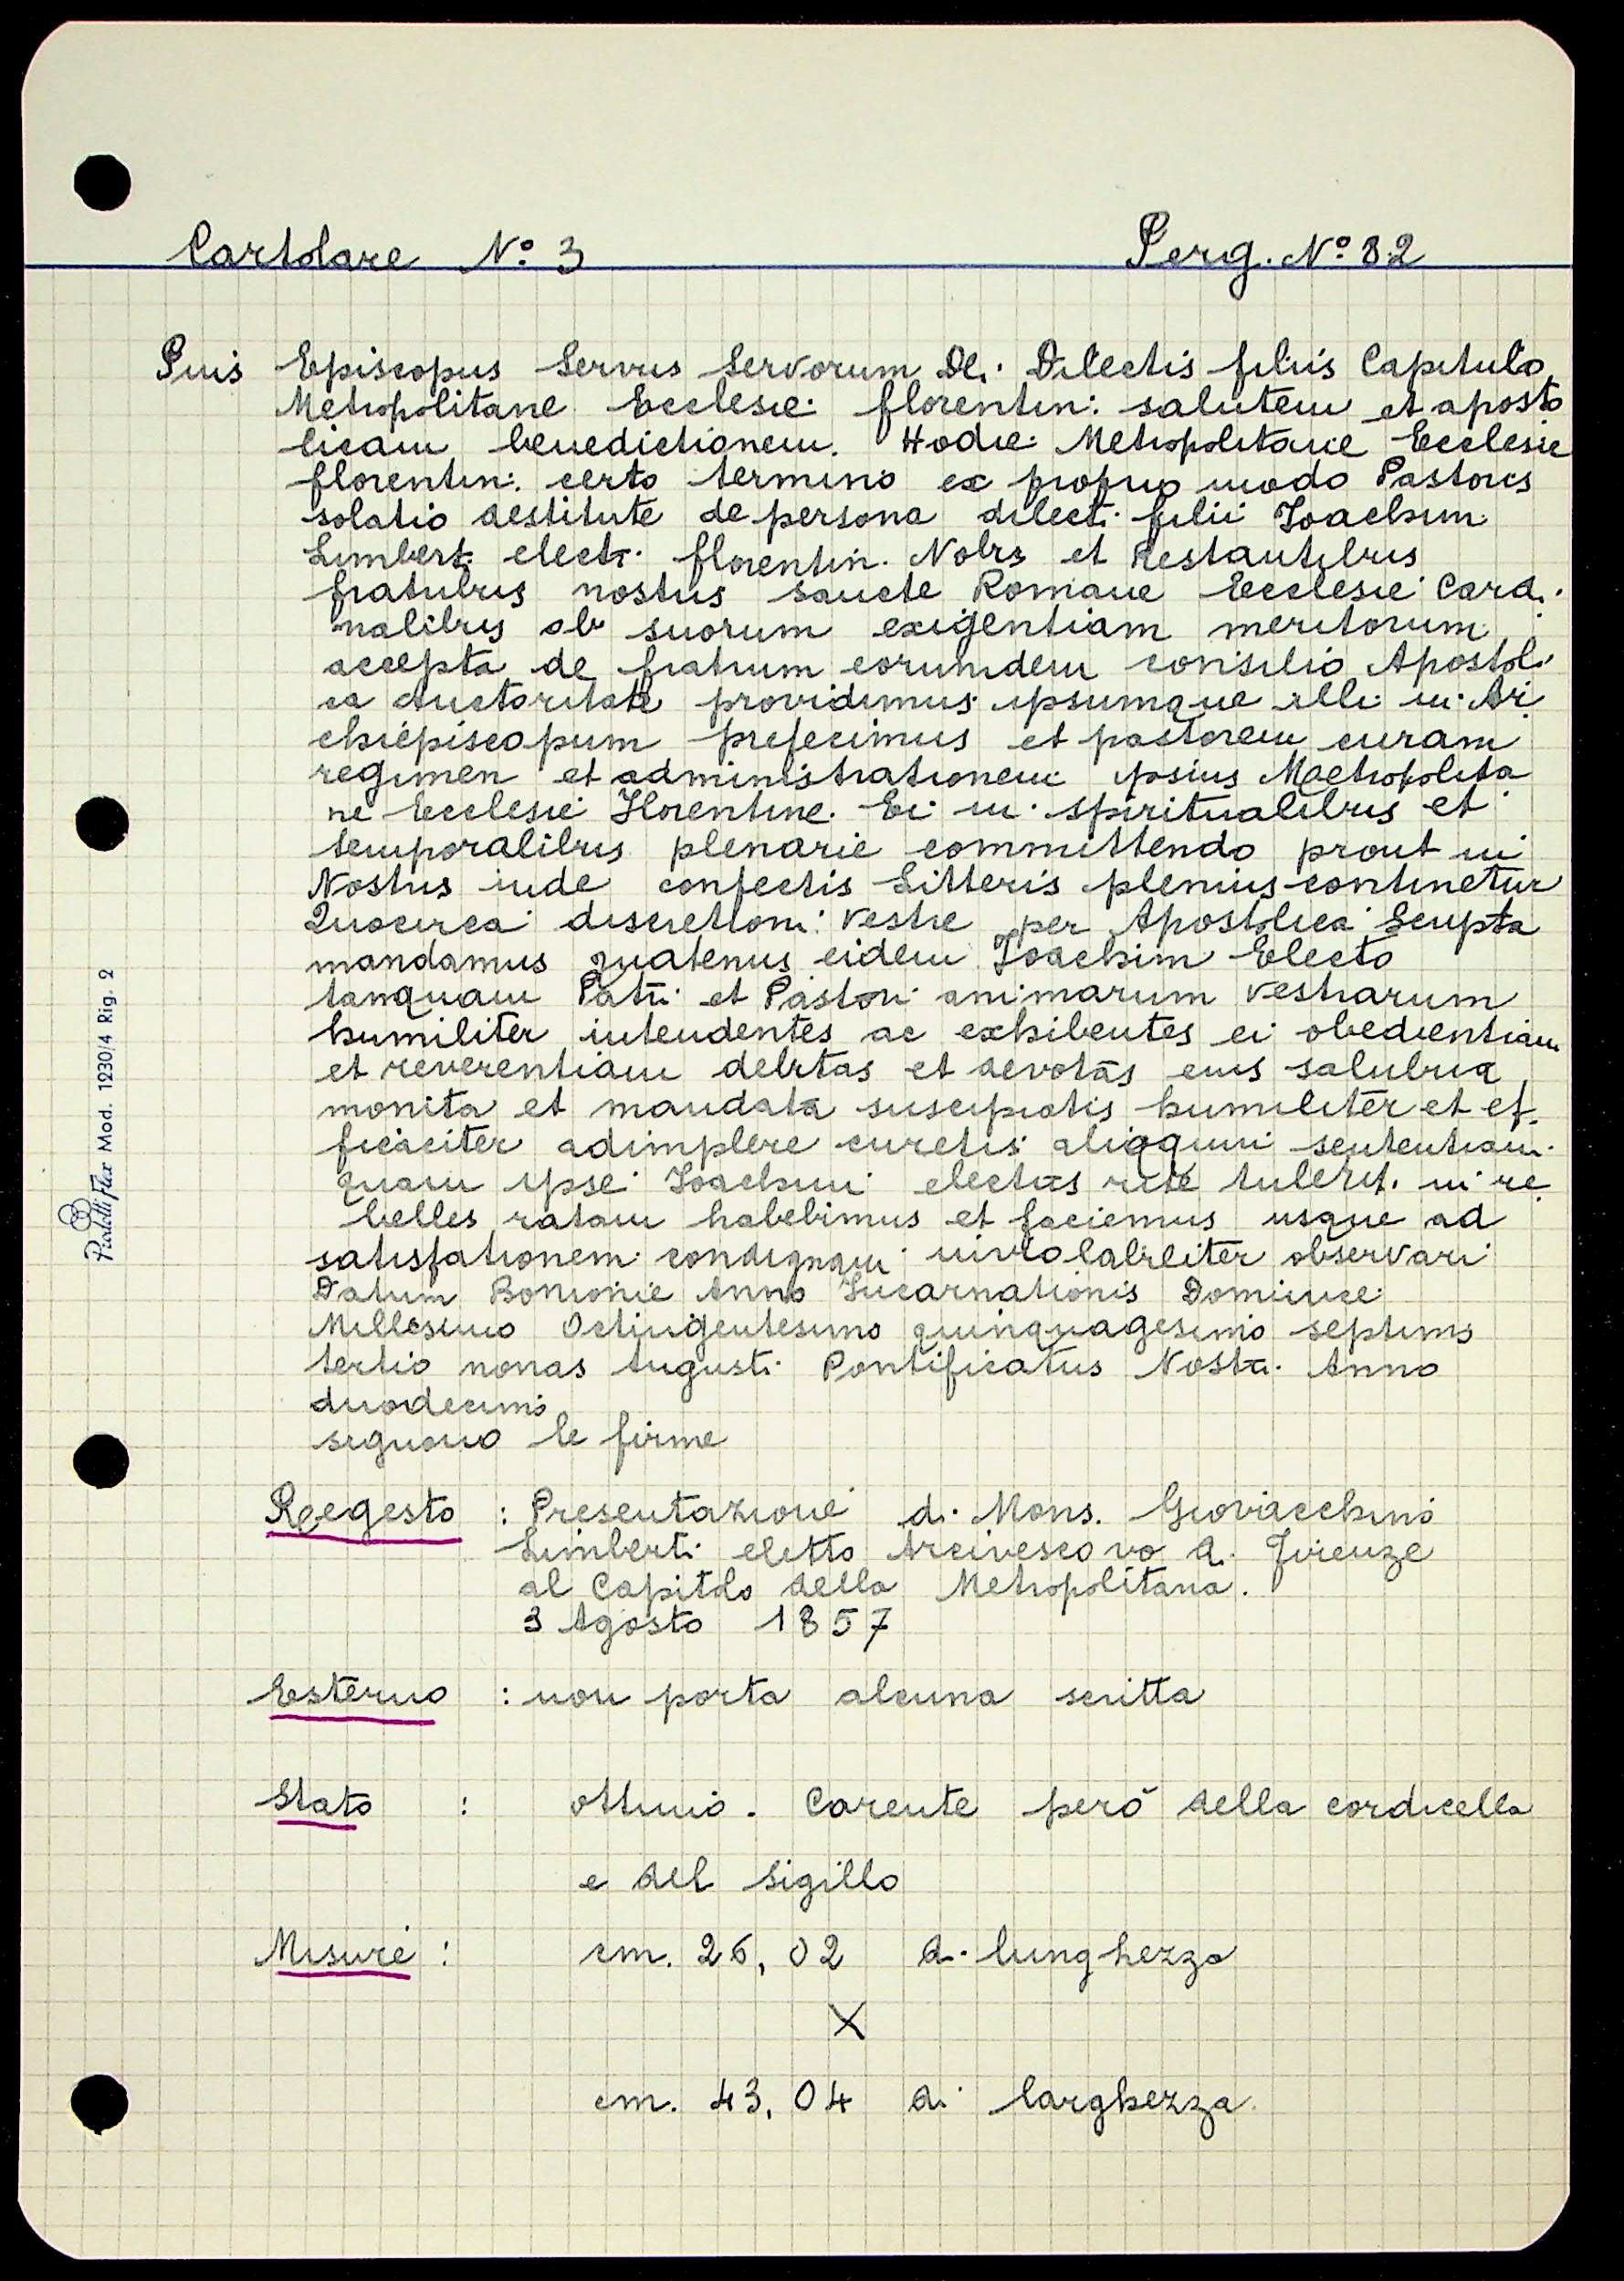 Cartolare N° 3 Perg. N° 82
Pius Episcopus Servus Servorum Dei. Dilectis filiis Capitulo
Metropolitane Ecclesie florentin: salutem et aposto
licam benedictionem. Hodie Metropolitane Ecclesie
florentin: certo termino ex proprio modo Pastores
solatio destitute de persona dilecti filii Joachim
Limberti electi florentin. Nobis et Restantibus
fratribus nostris sancte Romane Ecclesie Cardi
nalibus ob suorum exigentiam meritorum
accepta de fratrum eorumdem consilio Apostoli
ca Auctoritate providimus ipsumque illi in Ar
chiepiscopum prefecimus et pastorem curam
regimen et administrationem ipsius Metropolita
ne Ecclesie Florentine. Ei in spiritualibus et
temporalibus plenarie committendo prout in
Nostris inde confectis Litteris plenius continetur
Quocirca discretioni vestre per Apostolica Scripta
mandamus quatenus eidem Joachim Electo
tanquam Patri et Pastori animarum vestrarum
humiliter intendentes ac exhibentes ei obedientiam
et reverentiam debitas et devotas eius salubria
monita et mandata suscipiatis humiliter et ef
ficaciter adimplere curetis alioquin sententiam
quam ipse Joachim electus rite tulerit in re
belles ratam habebimus et faciemus usque ad
satisfationem condignam inviolabiliter observari
Datum Bononie Anno Incarnationis Dominice
Millesimo Octingentesimo quinquagesimo septimo
tertio nonas Augusti Pontificatus Nostri Anno
duodecimo
seguono le firme
Regesto : Presentazione di Mons. Giovacchino
Limberti eletto Arcivescovo di Firenze
al Capitolo della Metropolitana.
3 Agosto 1857
Esterno : non porta alcuna scritta
Stato : ottimo. Carente però della cordicella
e del sigillo
Misure : cm. 26,02 di lunghezza
X
cm. 43,04 di larghezza.
Pigna Flex Mod. 1230/4 Rig. 2